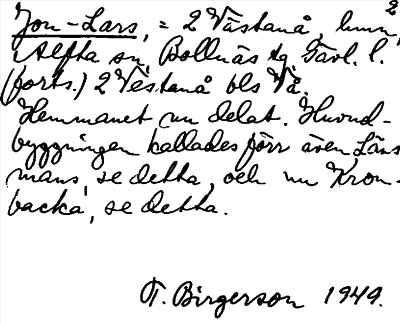 Jon-Lars, = 2 Västanå, hmn 2,
i Alfta sn, Bollnäs tg. Gävl. l.
(forts.) 2 Västanå bls Vä.
Hemmanet nu delat. Huvud-
byggningen kallades förr även Läns
mans, se detta, och nu Kron-
backa, se detta.
T. Birgerson 1949.